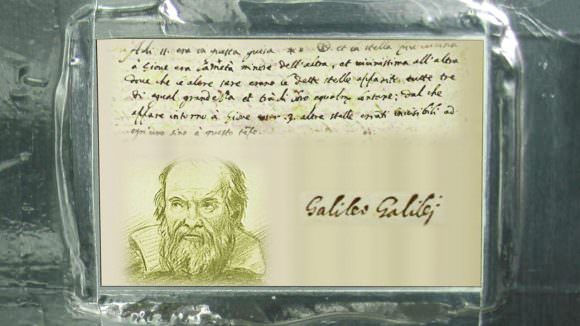 Adi 11. era in questa guisa et la stella più vicina
à Giove era la metà minore dell'altra, et vicinissima all'altra
dove che le altre sere erano le dette stelle apparite tutte tre
di egual grandezza et tra di loro lontane; dal che
appare intorno à Giove esser .3. altre stelle erranti invisibili ad
ogn'uno sino à questo tempo.
Galileo Galilej